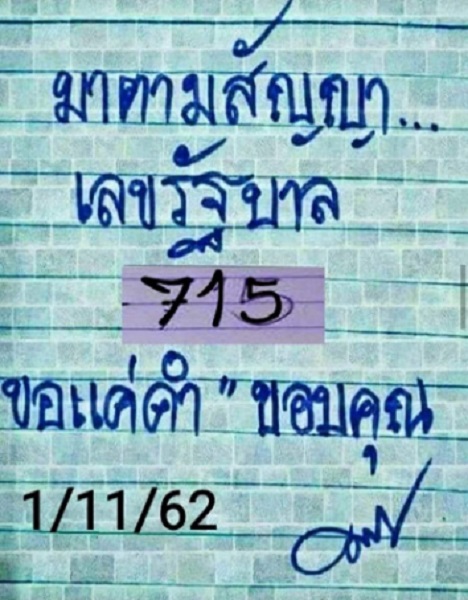 มาตามสัญญา...
เลขรัฐบาล
715
ขอแค่คำ " ขอบคุณ
1/11/62